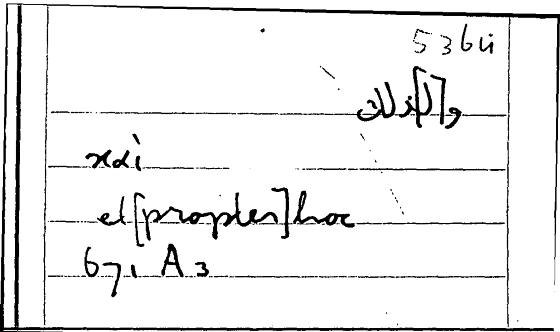 5364
و[ل]ذلك
καὶ
et [propter] hoc
671 A 3